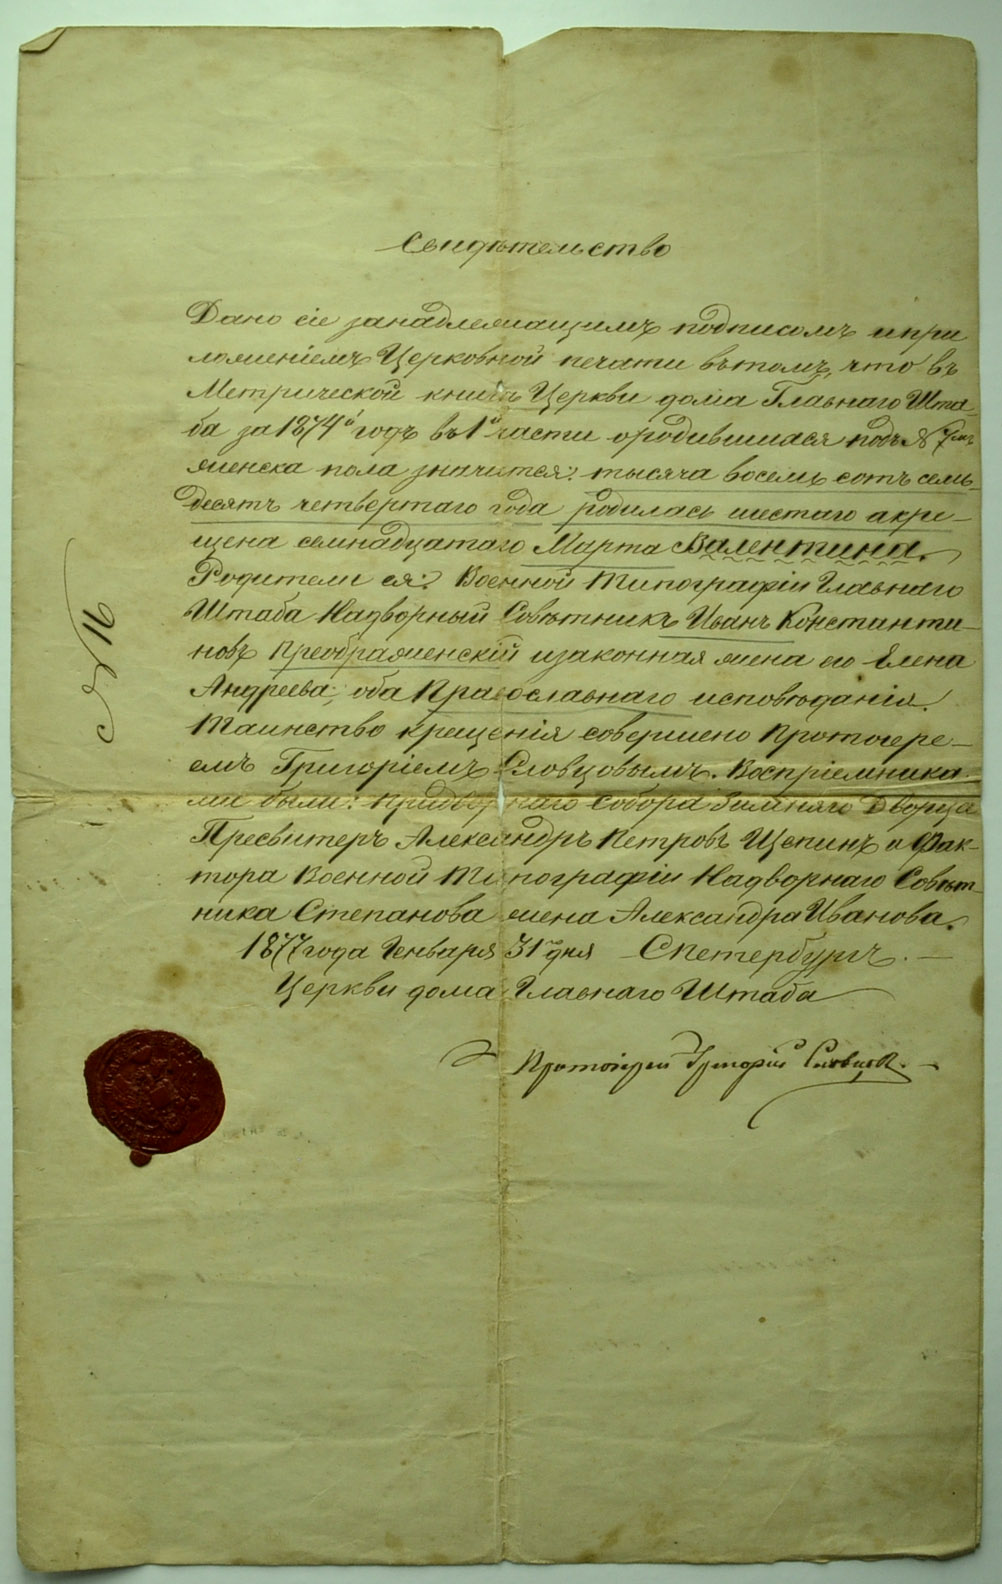 Свидѣтельство
Дано сіе занадлежащимъ подписомъ ипри
ложеніемъ Церковной печати вътомъ, что въ
Метрической книгѣ Церкви дома Главнаго Шта-
ба за 1874й годъ въ 1й части ородившихся подъ № 7мъ
женска пола значится: тысяча восемь сотъ семь-
десятъ четвертаго года родилась шестаго акре-
щена семнадцатаго Марта Валентина.
Родители ея: Военной Типографіи Главнаго
Штаба Надворный Совѣтникъ Иванъ Константи-
новъ Преображенскій изаконная жена его Елена
Андреева, оба Православнаго исповѣданія.
Таинство крещенія совершено Протоіере-
емъ Григоріемъ Словцовымъ. Воспріемника-
ми были: Придворнаго Собора Зимняго Дворца
Пресвитеръ Александръ Петровъ Щепинъ и Фак-
тора Военной Типографіи Надворнаго Совѣт-
ника Степанова жена Александра Иванова.
1877 года Генваря 31 дня СПетербургъ.
Церкви дома Главнаго Штаба
Протоіерей Григорій Словцовъ.
№ 16